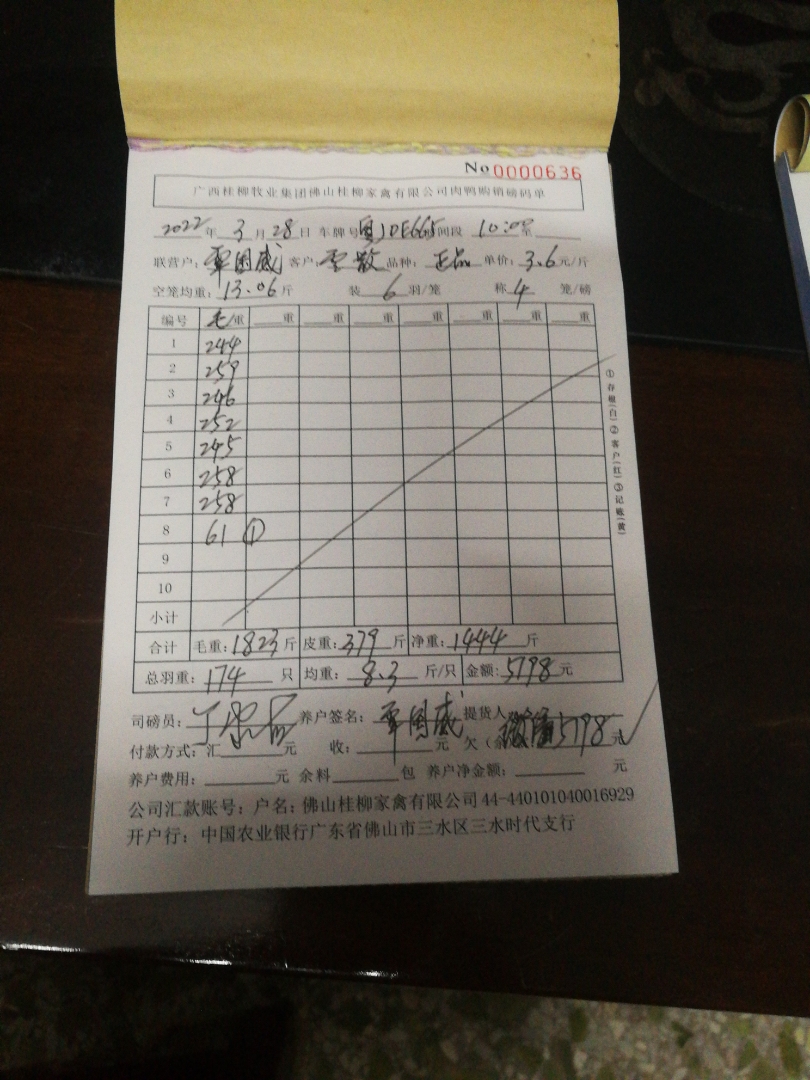 No 0000636
广西桂柳牧业集团佛山桂柳家禽有限公司肉鸭购销磅码单
2022年 3月 28日 车牌号 粤JDE665 时间段 10:00至
联营户: 覃国威 客户: 散 品种: 正品 单价: 3.6元/斤
空笼均重: 13.06斤 装 6 羽/笼 称 4 笼/磅
编号 毛/重 重 重 重 重 重 重 重
1 244
2 259
3 246
4 252
5 245
6 258
7 258
8 61 ①
9
10
小计
合计 毛重: 1823斤 皮重: 379斤 净重: 1444斤
总羽重: 174 只 均重: 8.3 斤/只 金额: 5198元
司磅员: 养户签名: 覃国威 提货人
付款方式: 汇 元 收: 元 欠(余 5198元
养户费用: 元 余料 包 养户净金额: 元
公司汇款账号: 户名: 佛山桂柳家禽有限公司 44-440101040016929
开户行: 中国农业银行广东省佛山市三水区三水时代支行
①存根(白)②客户(红)③记账(黄)